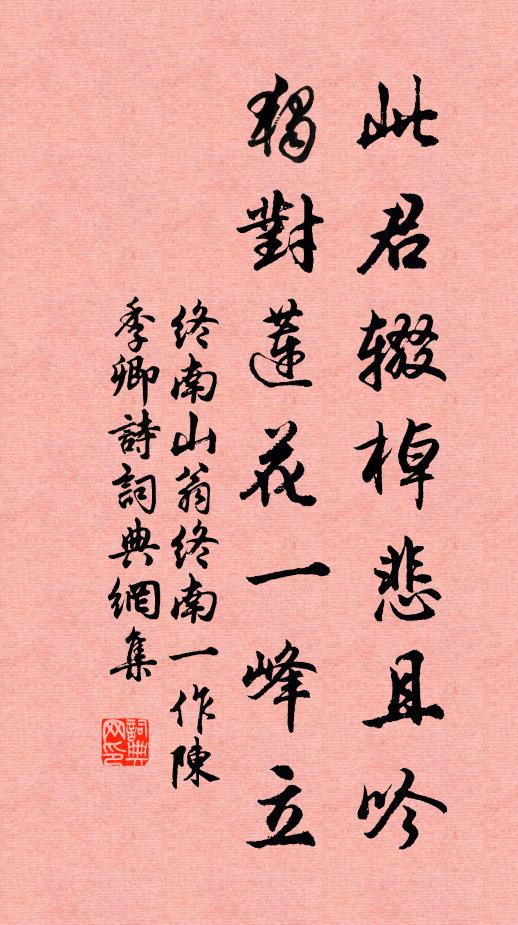 此君辍棹悲且吟
獨對蓮花一峰立
終南山翁終南一作陳
季卿詩詞典網集
詞典
网印